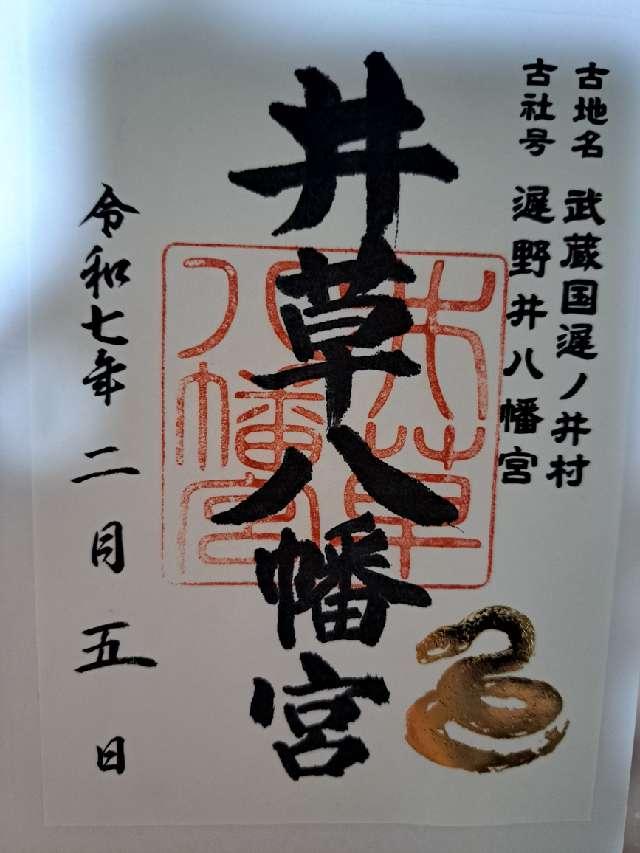 古地名 武蔵国遅ノ井村
古社号 遅野井八幡宮
井草八幡宮
井草八幡宮
令和七年 二月 五日